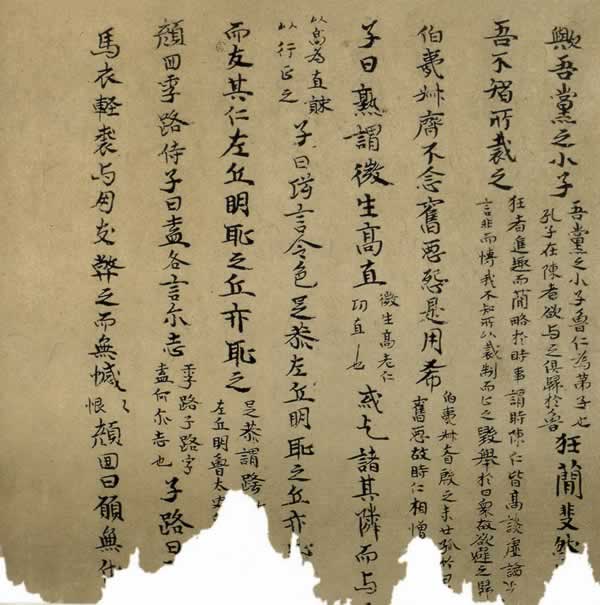 歟吾黨之小子吾黨之小子魯仁為第子也孔子在陳者欲与之俱歸於魯狂蕳斐然
吾不智所裁之狂者進趣而蕳略於時事謂時陳仁皆高談虛論言非而博我不知所以裁制而止之毀舉於日衆故欲避之歸
伯夷叔齊不念舊惡怨是用希伯夷叔齊殷之末世孤竹舊惡故時仁相憎
子曰孰謂微生高直微生高老仁功直也或乞諸其隣而与
以高為直以行正之子曰巧言令色足恭左丘明恥之丘亦
而友其仁左丘明恥之丘亦恥之足恭謂左丘明魯太史
顏回季路侍子曰盍各言尔志季路子路字盍何尔志也子路曰
馬衣輕裘与朋友弊之而無憾恨顏回曰願無伐